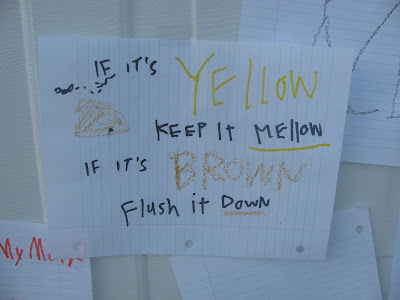 IF IT'S YELLOW
KEEP It MELLOW
IF IT'S BROWN
Flush it DOWN
My